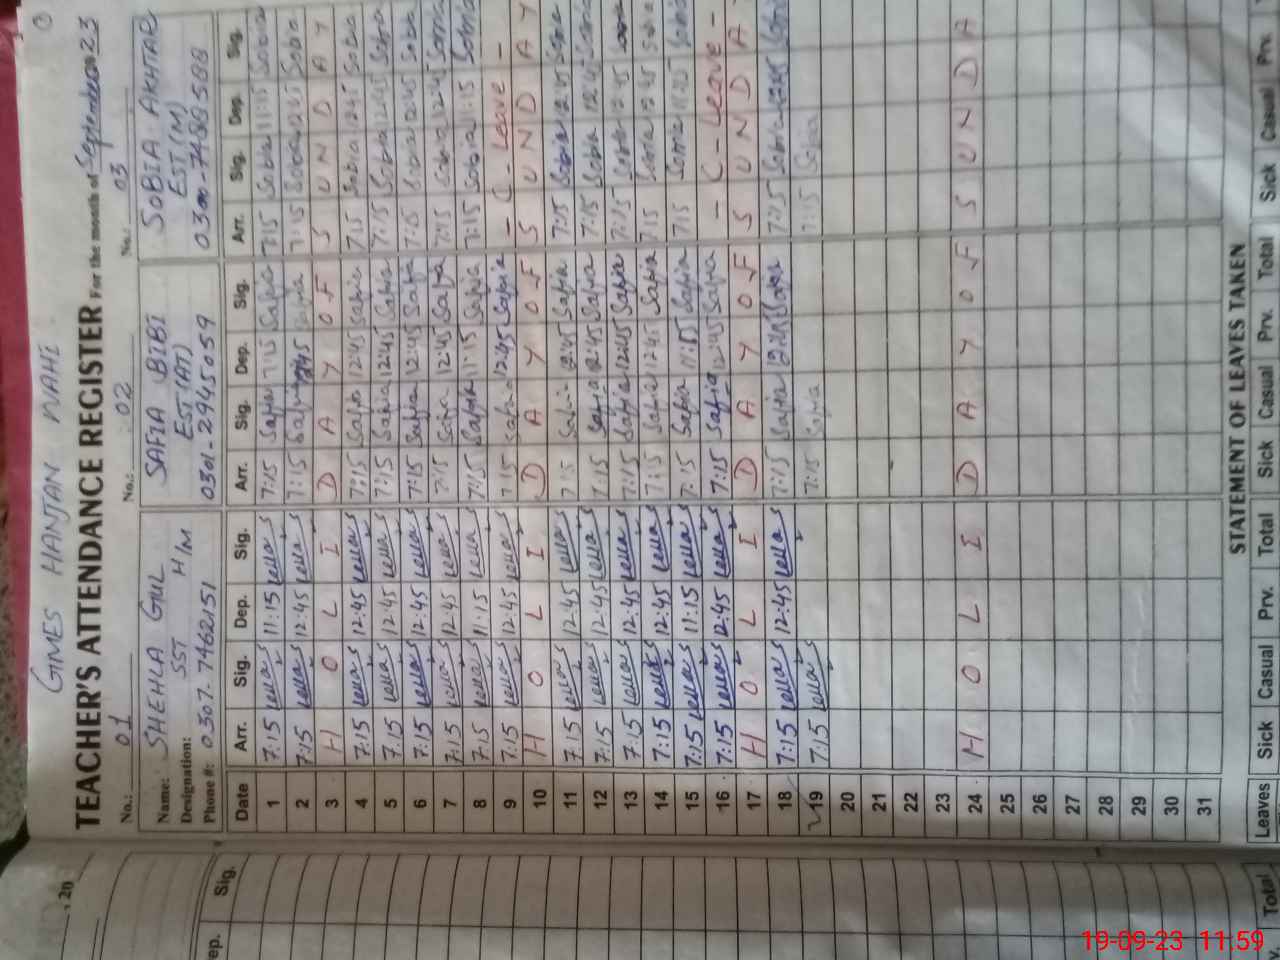 GMES HANJAN WAHI
TEACHER'S ATTENDANCE REGISTER For the month of September 2023
No.: 01 No.: 02 No.: 03
Name: SHEHLA GUL SAFIA BIBI SOBIA AKHTAR
Designation: SST H/M EST(AT) EST(M)
Phone #: 0307-7462151 0301-2945059 0300-7488588
Date Arr. Sig. Dep. Sig. Arr. Sig. Dep. Sig. Arr. Sig. Dep. Sig.
1 7:15 11:15 7:15 Safia 11:15 Safia 7:15 Sobia 11:15 Sobia
2 7:15 12:45 7:15 Safia 12:45 Safia 7:15 Sobia 12:45 Sobia
3 H O L I D A Y O F S U N D A Y
4 7:15 12:45 7:15 Safia 12:45 Safia 7:15 Sobia 12:45 Sobia
5 7:15 12:45 7:15 Safia 12:45 Safia 7:15 Sobia 12:45 Sobia
6 7:15 12:45 7:15 Safia 12:45 Safia 7:15 Sobia 12:45 Sobia
7 7:15 12:45 7:15 Safia 12:45 Safia 7:15 Sobia 12:45 Sobia
8 7:15 11:15 7:15 Safia 11:15 Safia 7:15 Sobia 11:15 Sobia
9 7:15 12:45 7:15 Safia 12:45 Safia - C - Leave -
10 H O L I D A Y O F S U N D A Y
11 7:15 12:45 7:15 Safia 12:45 Safia 7:15 Sobia 12:45 Sobia
12 7:15 12:45 7:15 Safia 12:45 Safia 7:15 Sobia 12:45 Sobia
13 7:15 12:45 7:15 Safia 12:45 Safia 7:15 Sobia 12:45 Sobia
14 7:15 12:45 7:15 Safia 12:45 Safia 7:15 Sobia 12:45 Sobia
15 7:15 11:15 7:15 Safia 11:15 Safia 7:15 Sobia 11:15 Sobia
16 7:15 12:45 7:15 Safia 12:45 Safia - C - Leave -
17 H O L I D A Y O F S U N D A Y
18 7:15 12:45 7:15 Safia 12:45 Safia 7:15 Sobia 12:45 Sobia
19 7:15 7:15 Safia 7:15 Sobia
20
21
22
23
24 H O L I D A Y O F S U N D A
25
26
27
28
29
30
31
STATEMENT OF LEAVES TAKEN
Leaves Sick Casual Prv. Total Sick Casual Prv. Total Sick Casual Prv.
, 20
ep. Sig.
v. Total
19-09-23 11:59